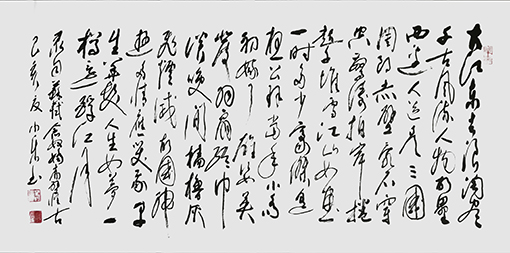 大江东去浪淘尽
千古风流人物故垒
西边人道是三国
周郎赤壁乱石穿
空惊涛拍岸卷
起千堆雪江山如画
一时多少豪杰遥
想公瑾当年小乔
初嫁了雄姿英
发羽扇纶巾
谈笑间樯橹灰
飞烟灭故国神
游多情应笑我早
生华发人生如梦一
樽还酹江月
录自苏轼念奴娇赤壁怀古
己亥夏小朱书